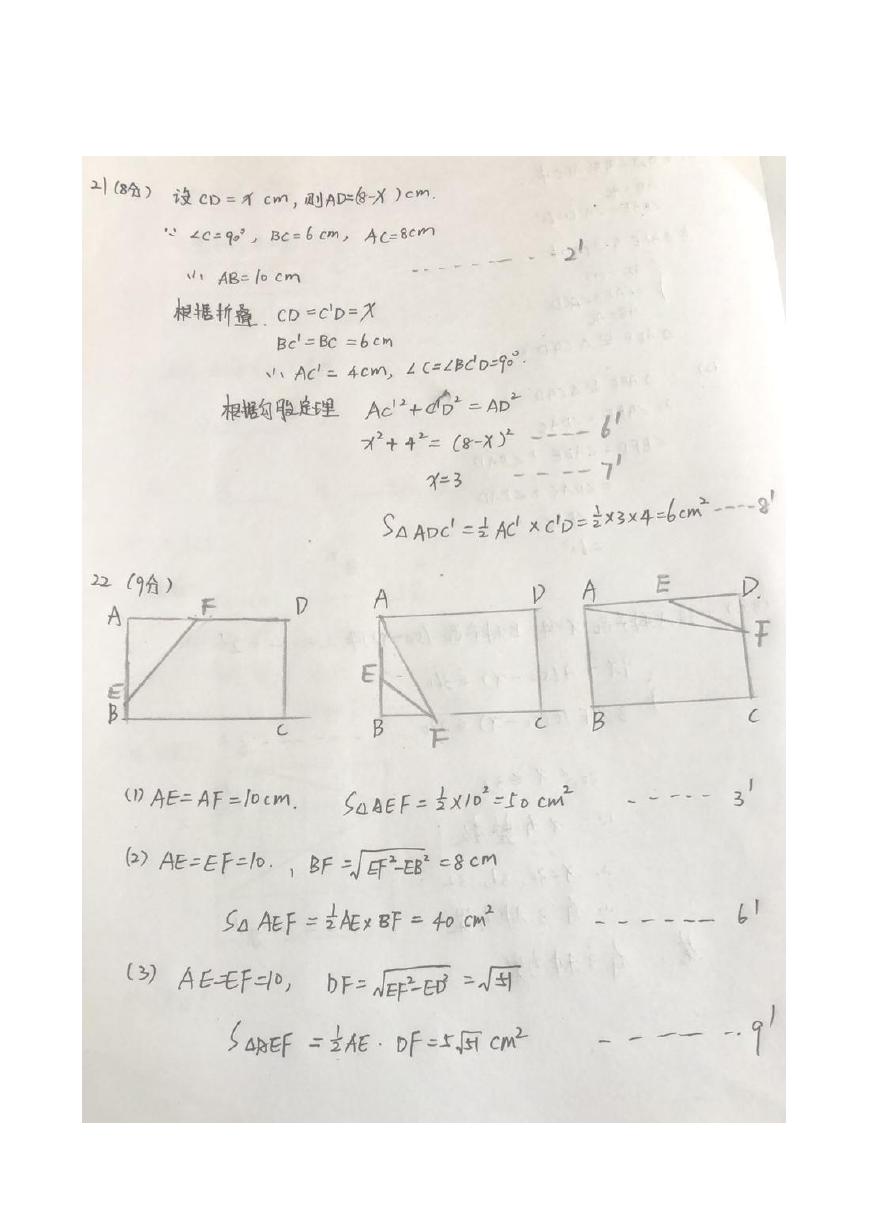 21 (8分) 设 CD = x cm, 则AD=(8-x) cm.
∵ ∠C=90°, BC=6 cm, AC=8cm
∴ AB=10 cm -------- 2'
根据折叠. CD = C'D = x
BC' = BC = 6 cm
∴ AC' = 4cm, ∠C=∠BC'D=90°.
根据勾股定理 AC'² + C'D² = AD²
x² + 4² = (8-x)² ---- 6'
x=3 ---- 7'
S△ADC' = ½ AC' × C'D = ½×3×4=6cm² ---- 8'
22 (9分)
A F D
E
B C
A D
E
B F C
A E D.
F
B C
(1) AE=AF=10cm. S△AEF = ½×10² = 50 cm² ----- 3'
(2) AE=EF=10. , BF = √EF²-EB² = 8 cm
S△ AEF = ½AE×BF = 40 cm² ------ 6'
(3) AE=EF=10, DF= √EF²-ED² = √51
S△AEF = ½AE · DF = 5√51 cm² ------ 9'